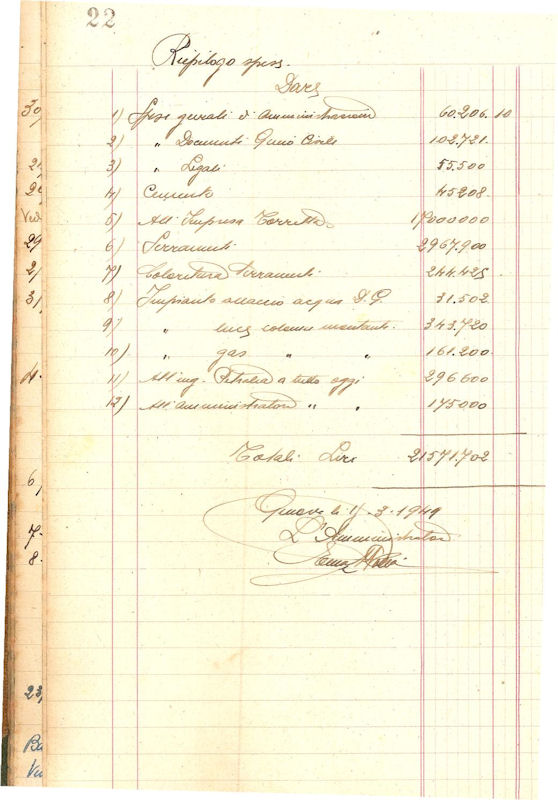 22
Riepilogo spese
Dare
30/
1) Spese generali d'amministrazione 60.206.10
2) " Documenti Genio Civile 102.721.
3) " Legali 55.500
4) Cemento 45208.
Ved
5) All'Impresa Torretta 17000000
29
6) Serramenti 2967.900
2/
7) Coloritura serramenti 244.425
3/
8) Impianto allaccio acqua D.G. 31.502
9) " luce colonne montanti. 343.720
10) " gas " " 161.200.
11) All'ing. Petralia a tutto oggi 296600
12) All'amministratore " " 175000
Totali Lire 21571.702
6/
Genova li 1/-3-1949
7.
L'Amministratore
8.
23/